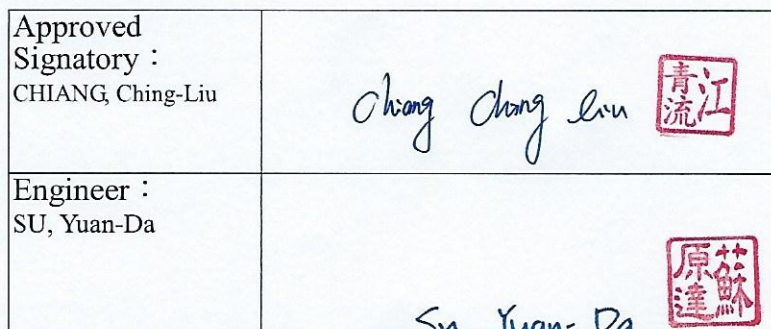 Approved
Signatory：
CHIANG, Ching-Liu
Chiang Ching liu
江青流
Engineer：
SU, Yuan-Da
Su Yuan-Da
蘇原達